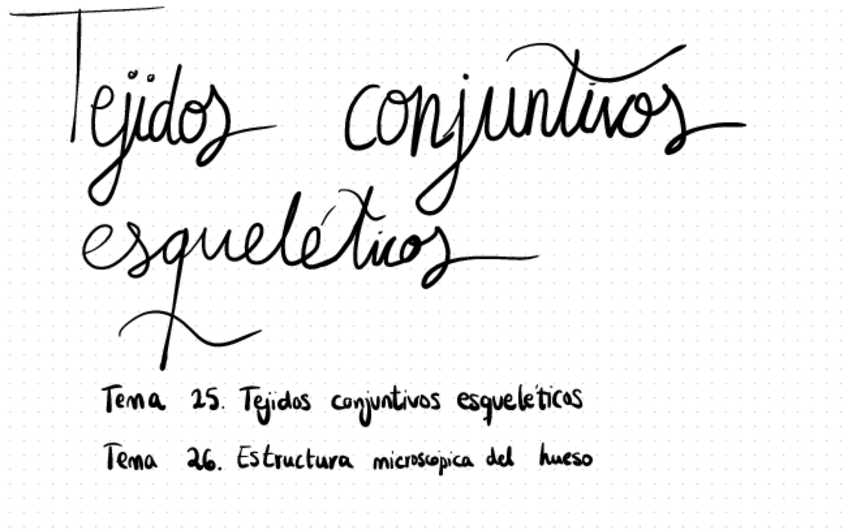 Tejidos conjuntivos
esqueléticos
Tema 25. Tejidos conjuntivos esqueléticos
Tema 26. Estructura microscópica del hueso